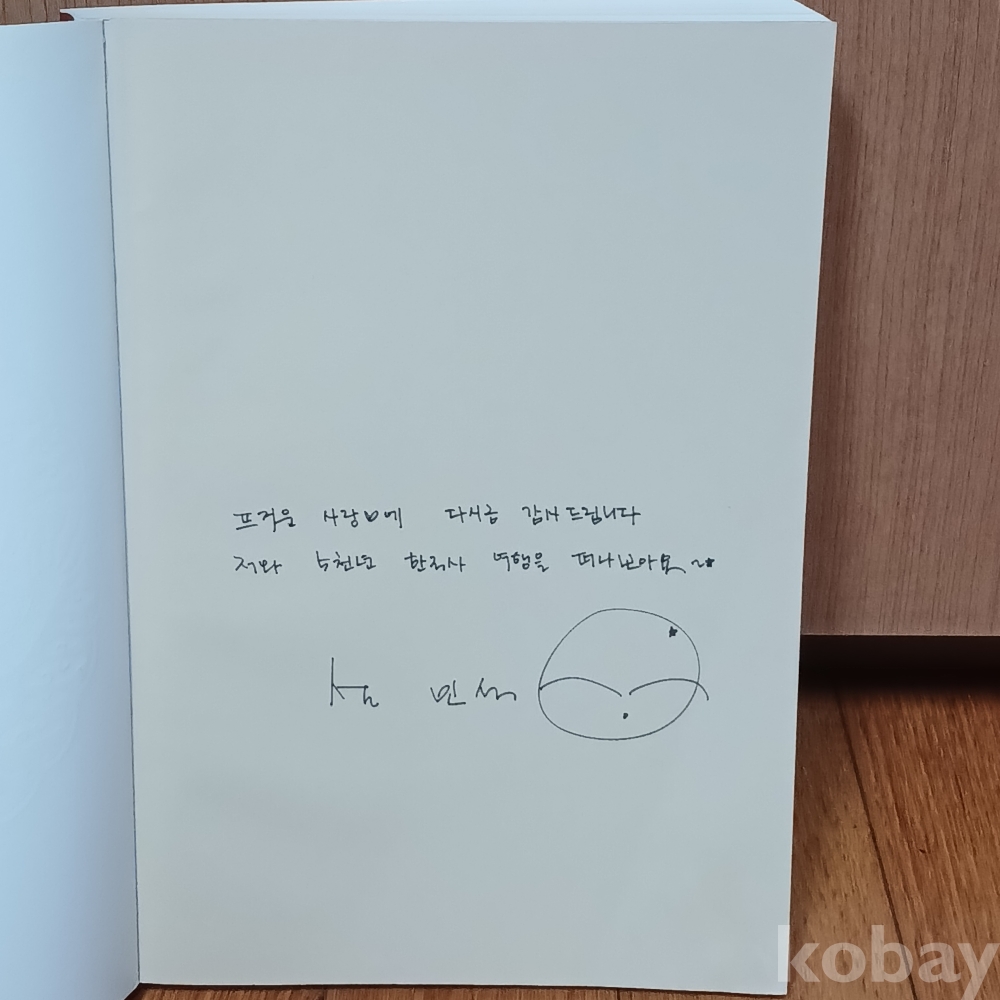 뜨거운 사랑♡에 다시금 감사드립니다
저와 5천년 한국사 여행을 떠나보아요~★
설 민석
kobay